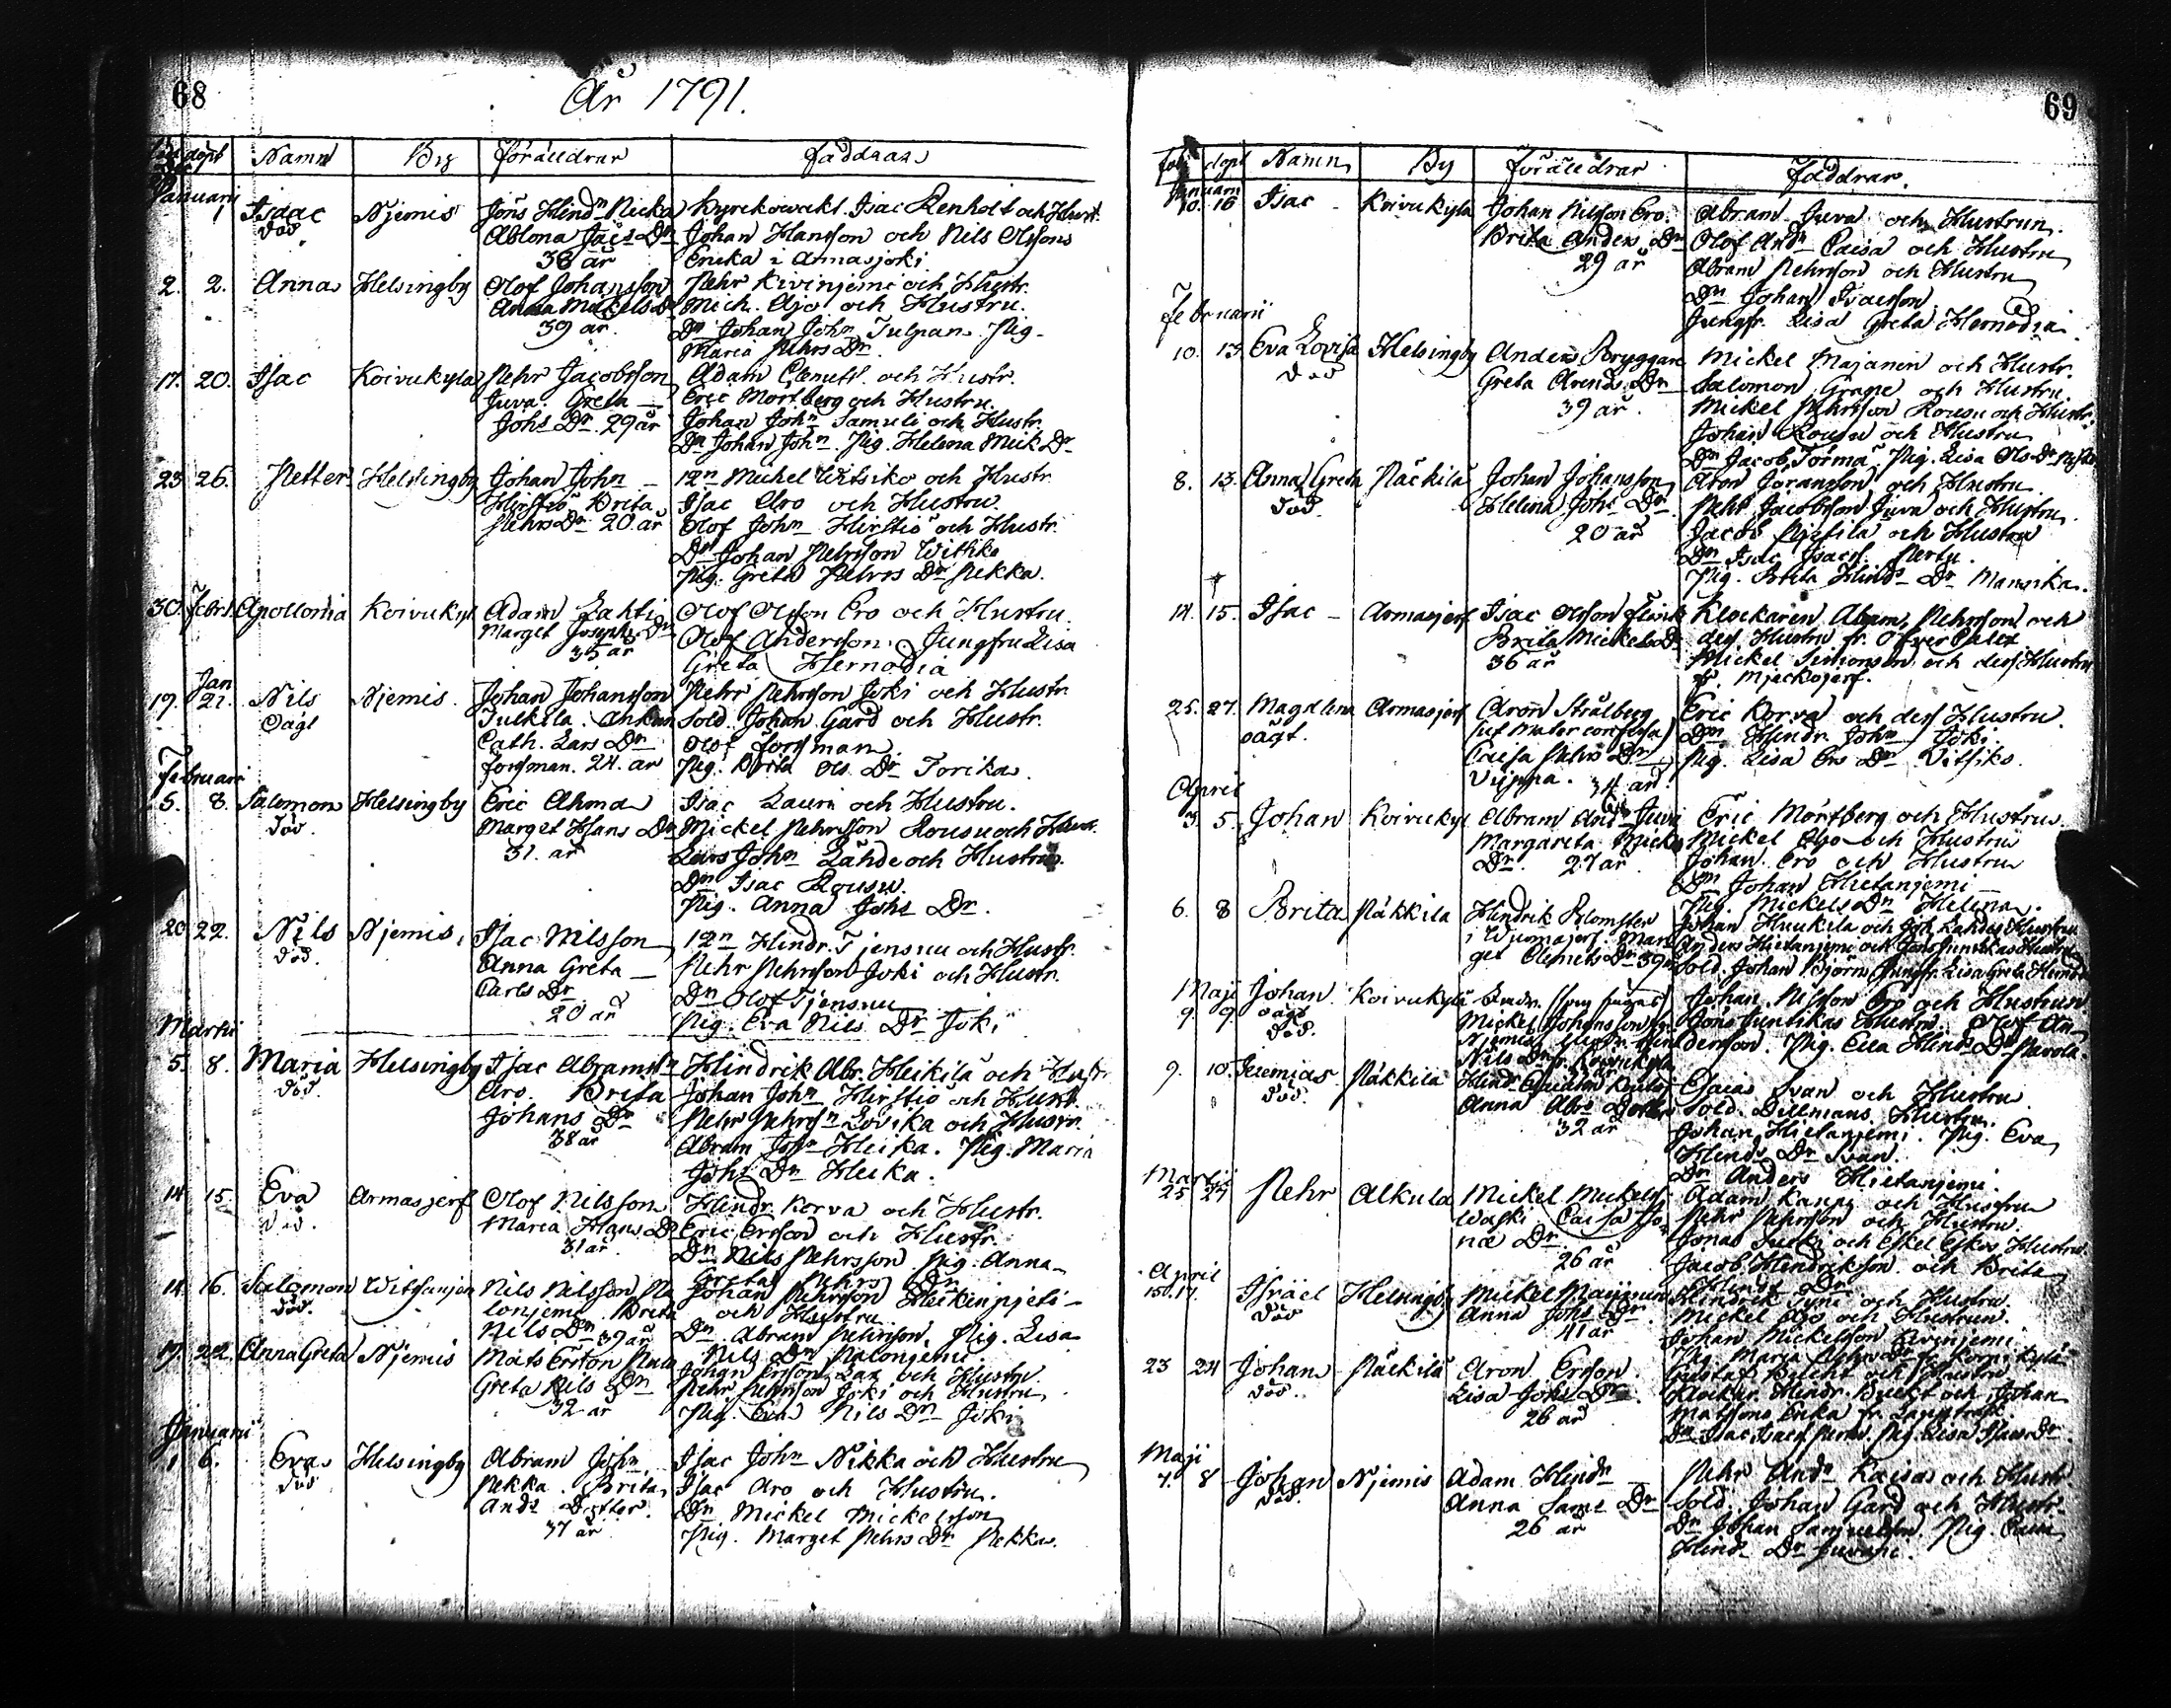 68
År 1791.
döpt Namn By föräldrar faddrar
Januari
1 Isaac Njemis Jöns Hindn Nicka Kyrckowakt. Isac Renholt och Hust.
död Ablona Jacs Dr Johan Hansson och Nils Olssons
38 år Ericka i Armasjoki
2. 2. Anna Helsingby Olof Johansson Pehr Kivinjemi och Hustr.
Anna Mickels Dr Mich. Ajo och Hustru.
39 år. Dn Johan John Pig.
Maria Pehrs Dr.
17. 20. Isac Koivukyla Pehr Jacobsson Adam och Hustr.
Juva. Greta Eric Mörtberg och Hustru.
Johs Dr. 29 år Johan John Samuli och Hustr.
Dn Johan John. Pig. Helena Mick Dr
23 26. Petter Helsingby Johan John 12n Mickel och Hustr
Hirstiö Brita Isac Aro och Hustru.
Pehrs Dr 20 år Olof John Hirstiö och Hustr.
Dn Johan Pehrsson Withko
Pig. Greta Pehrs Dr Pekka.
30. Apollonia Koivukyl Adam Lahti Olof Olsson Ero och Hustru.
Marget Josephs Dr Olof Andersson. Jungfru Lisa
35 år Greta Hernodia
Jan
19. 21. Nils Njemis. Johan Johansson Pehr Pehrsson Joki och Hustr
Oägt Tulkila. Sold. Johan Gard och Hustr.
Cath. Lars Dr Olof forsman.
forsman. 24. år Pig. Brita Ols Dr Torika.
Februari
5. 8. Salomon Helsingby Eric Ahma Isac Lauri och Hustru.
död. Marget Hans Dr Mickel Pehrsson Rousu och Hust.
31. år Lars John Lähde och Hustru.
Dn Isac Rousu.
Pig. Anna Johs Dr.
20 22. Nils Njemis. Isac Nilsson 12n Hindr. Tjensuu och Hustr.
död. Anna Greta Pehr Pehrsson Joki och Hustr.
Carls Dr Dn Olof Tjensuu
20 år Pig. Eva Nils Dr Joki
Martii
5. 8. Maria Helsingby Isac Abramsn Hindrik Abr. Heikilä och Hustr
död. Aro. Brita Johan John Hirstio och Hustr.
Johans Dr Pehr Pehrsn Lovika och Hustr.
38 år Abram John Heika. Pig. Maria
Johs Dr Heika.
14 15. Eva Armasjerf Olof Nilsson Hindr. Korva och Hustr.
död. Maria Hans Dr Eric Ersson och Hustr.
31 år. Dn Nils Pehrsson Pig. Anna
Greta Pehrs Dr
14. 16. Salomon Nils Nilsson Pa Johan Pehrsson Heikinpjeti
död. lonjemi Brita och Hustru
Nils Dr 39 år Dn. Abram Pehrsson. Pig. Lisa
Nils Dr Palonjemi.
19. 22. Anna Greta Njemis Mats Johan Ersson Lax och Hustru.
Greta Nils Dr Pehr Pehrsson Joki och Hustru
32 år Pig. Eva Nils Dr Joki
Januari
1 6. Eva Helsingby Abram John Isac John Nikka och Hustru
död Pekka. Brita Isac Aro och Hustru.
Ands Dotter. Dn Mickel Mickelsson
37 år Pig. Marget Pehrs Dr Pekka.
69
döpt Namn By föräldrar Faddrar.
Januarii
10. 16 Isac Koivukyla Johan Nilsson Ero. Abram Juva och Hustrun.
Brita Anders Dr Olof Andn Caisa och Hustru
29 år Abram Pehrsson och Hustru
Dn Johan Ivarsson
Jungfr. Lisa Greta Hernodia
Februarii
10. 13. Eva Lovisa Helsingby Anders Bryggare Mickel Majanen och Hustr.
död Greta Arends Dr Salomon Grape och Hustru.
39 år. Mickel Pehrsson Rousu och Hustr.
Johan Rousu och Hustru
Dn Jacob Törmä Pig. Lisa Ols Dr
8. 13. Anna Greta Päckilä Johan Johansson Aron Joransson och Hustru
död. Helena Johs Dr Pehr Jacobsson Juva och Hustru.
20 år Jacob och Hustru
Dn Isac Isacs.
Pig. Brita Hinds Dr
14. 15. Isac Armasjerf Isac Olsson Flink Klockaren Abram Pehrsson och
Brita Mickels Dr dess Hustru fr. Öfver
36 år Mickel Simonson och dess Hustru
fr. Mjeckojerf.
25. 27. Magdlena Armasjerf Aron Strålberg Eric Korva och dess Hustru.
oägt. (ut mater confessa) Dn Hindr. John Joki
Caisa Pehrs Dr Pig. Lisa Ers Dr Vitsiko.
34 år.
April
3. 5. Johan Koivukyl Abram Andn Juva Eric Mörtberg och Hustru
Margareta Micks Mickel Ajo och Hustru
Dr. 27 år Johan Ero och Hustru
Dn Johan Hietanjemi
Pig. Mickels Dr Helena.
6. 8 Brita Päkkila Hindrik Blomster Johan Huukila och Joh. Lahdis Hustru
i Anders Hietanjemi och Jöns Juntikas Hustru
get Clemets Dr 39 år Sold. Johan Björn. Jungfr. Lisa Greta
Maji
9. 9. Johan. Koivukyla Johan Nilsson Ero och Hustrun
oägt Mickel Johansson Jöns Juntikas Hustru. Olof An
död. derson. Pig. Hinds Dr
9. 10. Jeremias Päkkila Esaias Ivan och Hustru
död. Anna Abrs Dotter Sold. Dillmans Hustru.
32 år Johan Hietanjemi. Pig. Eva
Hinds Dr Ivan.
Dn Anders Hietanjemi.
Martii
25 27 Pehr Alkula Mickel Adam och Hustru
Caisa Jo Pehr Pehrsson och Hustru.
næ Dr Jonas och Eskel Eskos Hustru.
26 år Jacob Hendrikson och Brita
Hinds Dr
April
15. 17. Israel Helsingby Mickel Hindrik och Hustru
död Anna Johs Dr. Mickel Ajo och Hustrun.
41 år Johan Mickelsson Kivinjemi
Pig. Maria
23 24 Johan Päckilä Aron Ersson. Gustaf Bucht och Hustru
död. Lisa Johs Dr Klockar. Hindr. Buckt och Johan
26 år Matssons Erika fr.
Dn Isac Isacs. Pig. Lisa
Maji
7. 8 Johan Njemis Adam Hindn Pehr Andn Kaisa och Hustr
död. Anna Sams Dr Sold. Johan Gard och Hustr.
26 år Dn Johan Samuelson. Pig.
Hinds Dr